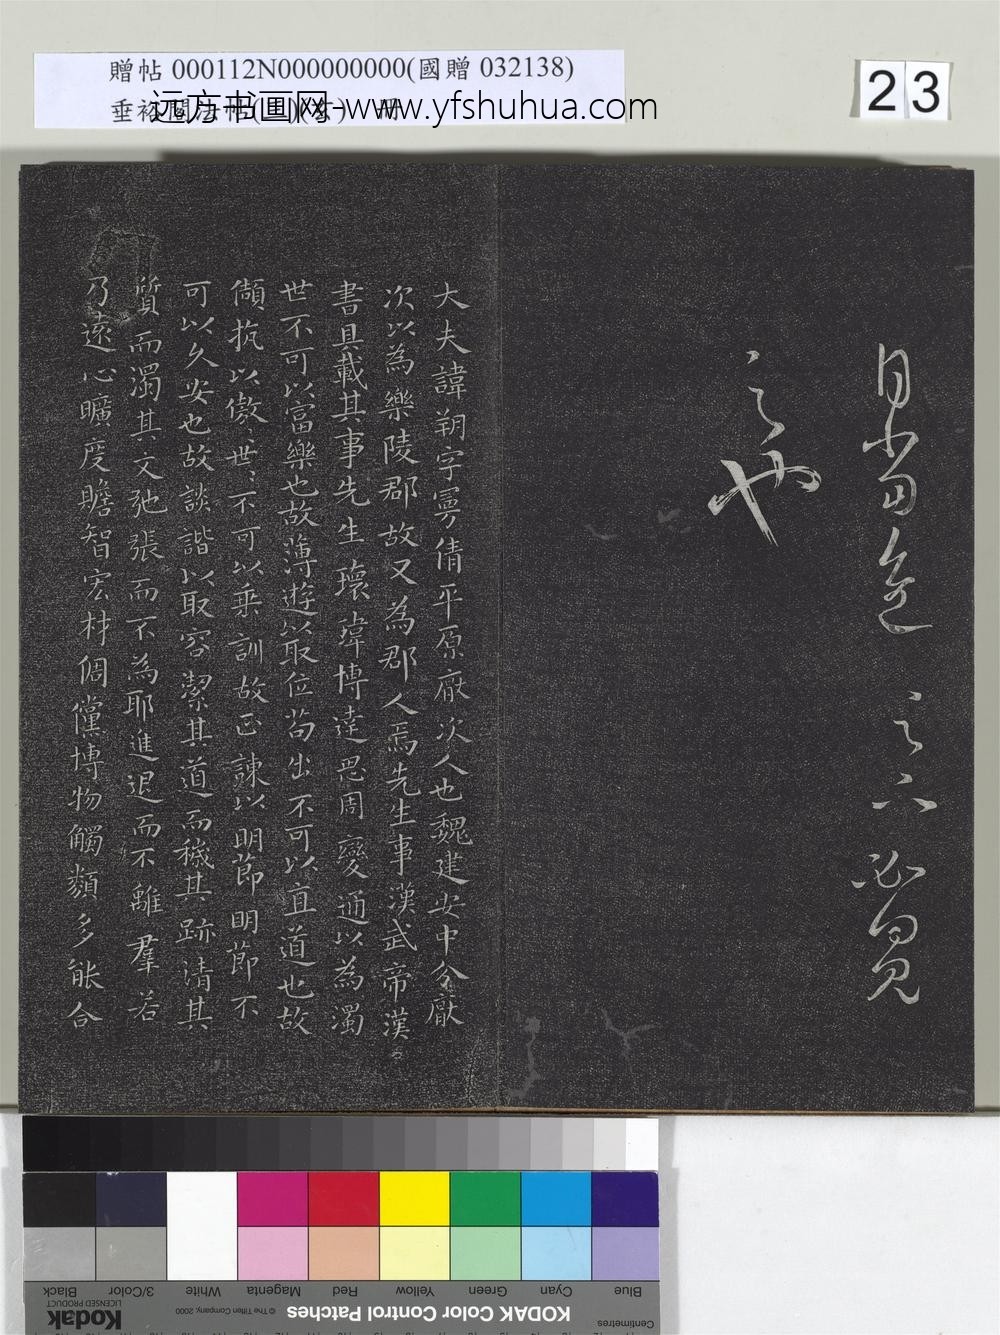 贈帖 000112N000000000(國贈 032138)
远方书画网 www.yfshuhua.com
23
之也
大夫諱朔字曼倩平原厭次人也魏建安中分厭
次以為樂陵郡故又為郡人焉先生事漢武帝漢
書具載其事先生瓌瑋博達思周變通以為濁
世不可以富樂也故薄遊以取位苟出不可以直道也故
傾抗以傲世、不可以乘訓故正諫以明節明節不
可以久安也故談諧以取容潔其道而穢其跡清其
質而濁其文弛張而不為耶進退而不離羣若
乃遠心曠度贍智宏材倜儻博物觸類多能合
Blue Cyan Green Yellow Red Magenta White 3/Color Black
KODAK Color Control Patches
© The Tiffen Company, 2000
Kodak
LICENSED PRODUCT
Centimetres